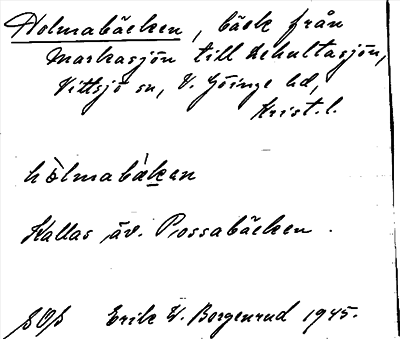 Holmabäcken, bäck från
Markasjön till Dehultasjön,
Vittsjö sn, V. Göinge hd,
Krist. l.
hòlmabàkan
Kallas äv. Possabäcken.
Erik W. Borgenrud 1945.